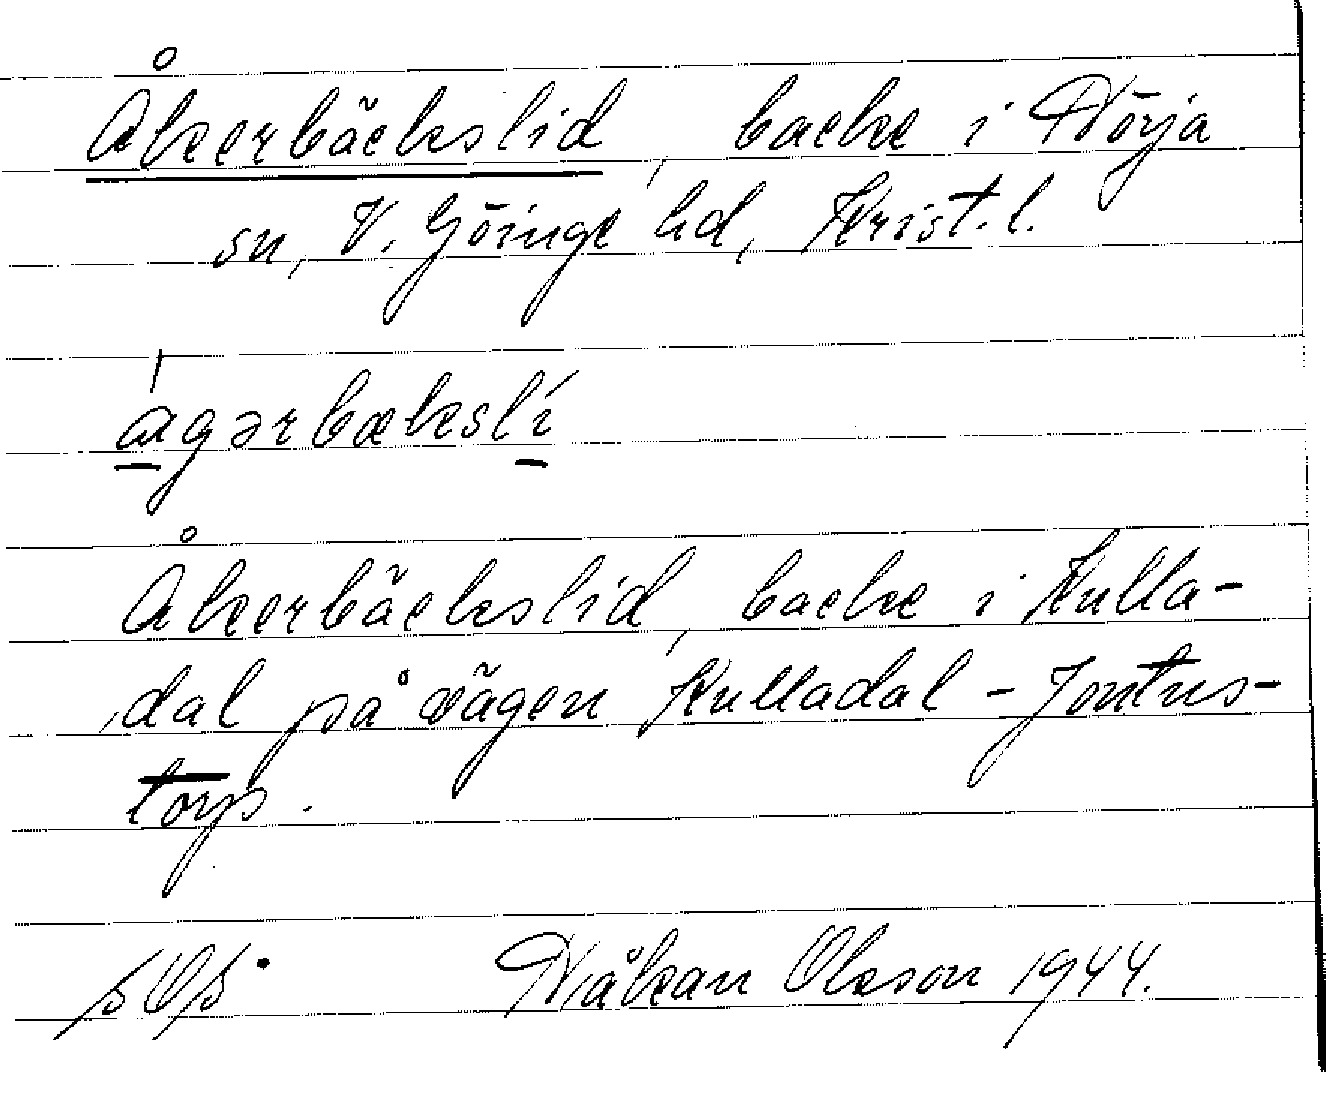 Åkerbäckslid, backe i Hörja
sn, V. Göinge hd, Krist. l.
ágərbækslí
Åkerbäckslid, backe i Kulla-
dal på vägen Kulladal - Jontus-
torp.
Håkan Olsson 1944.